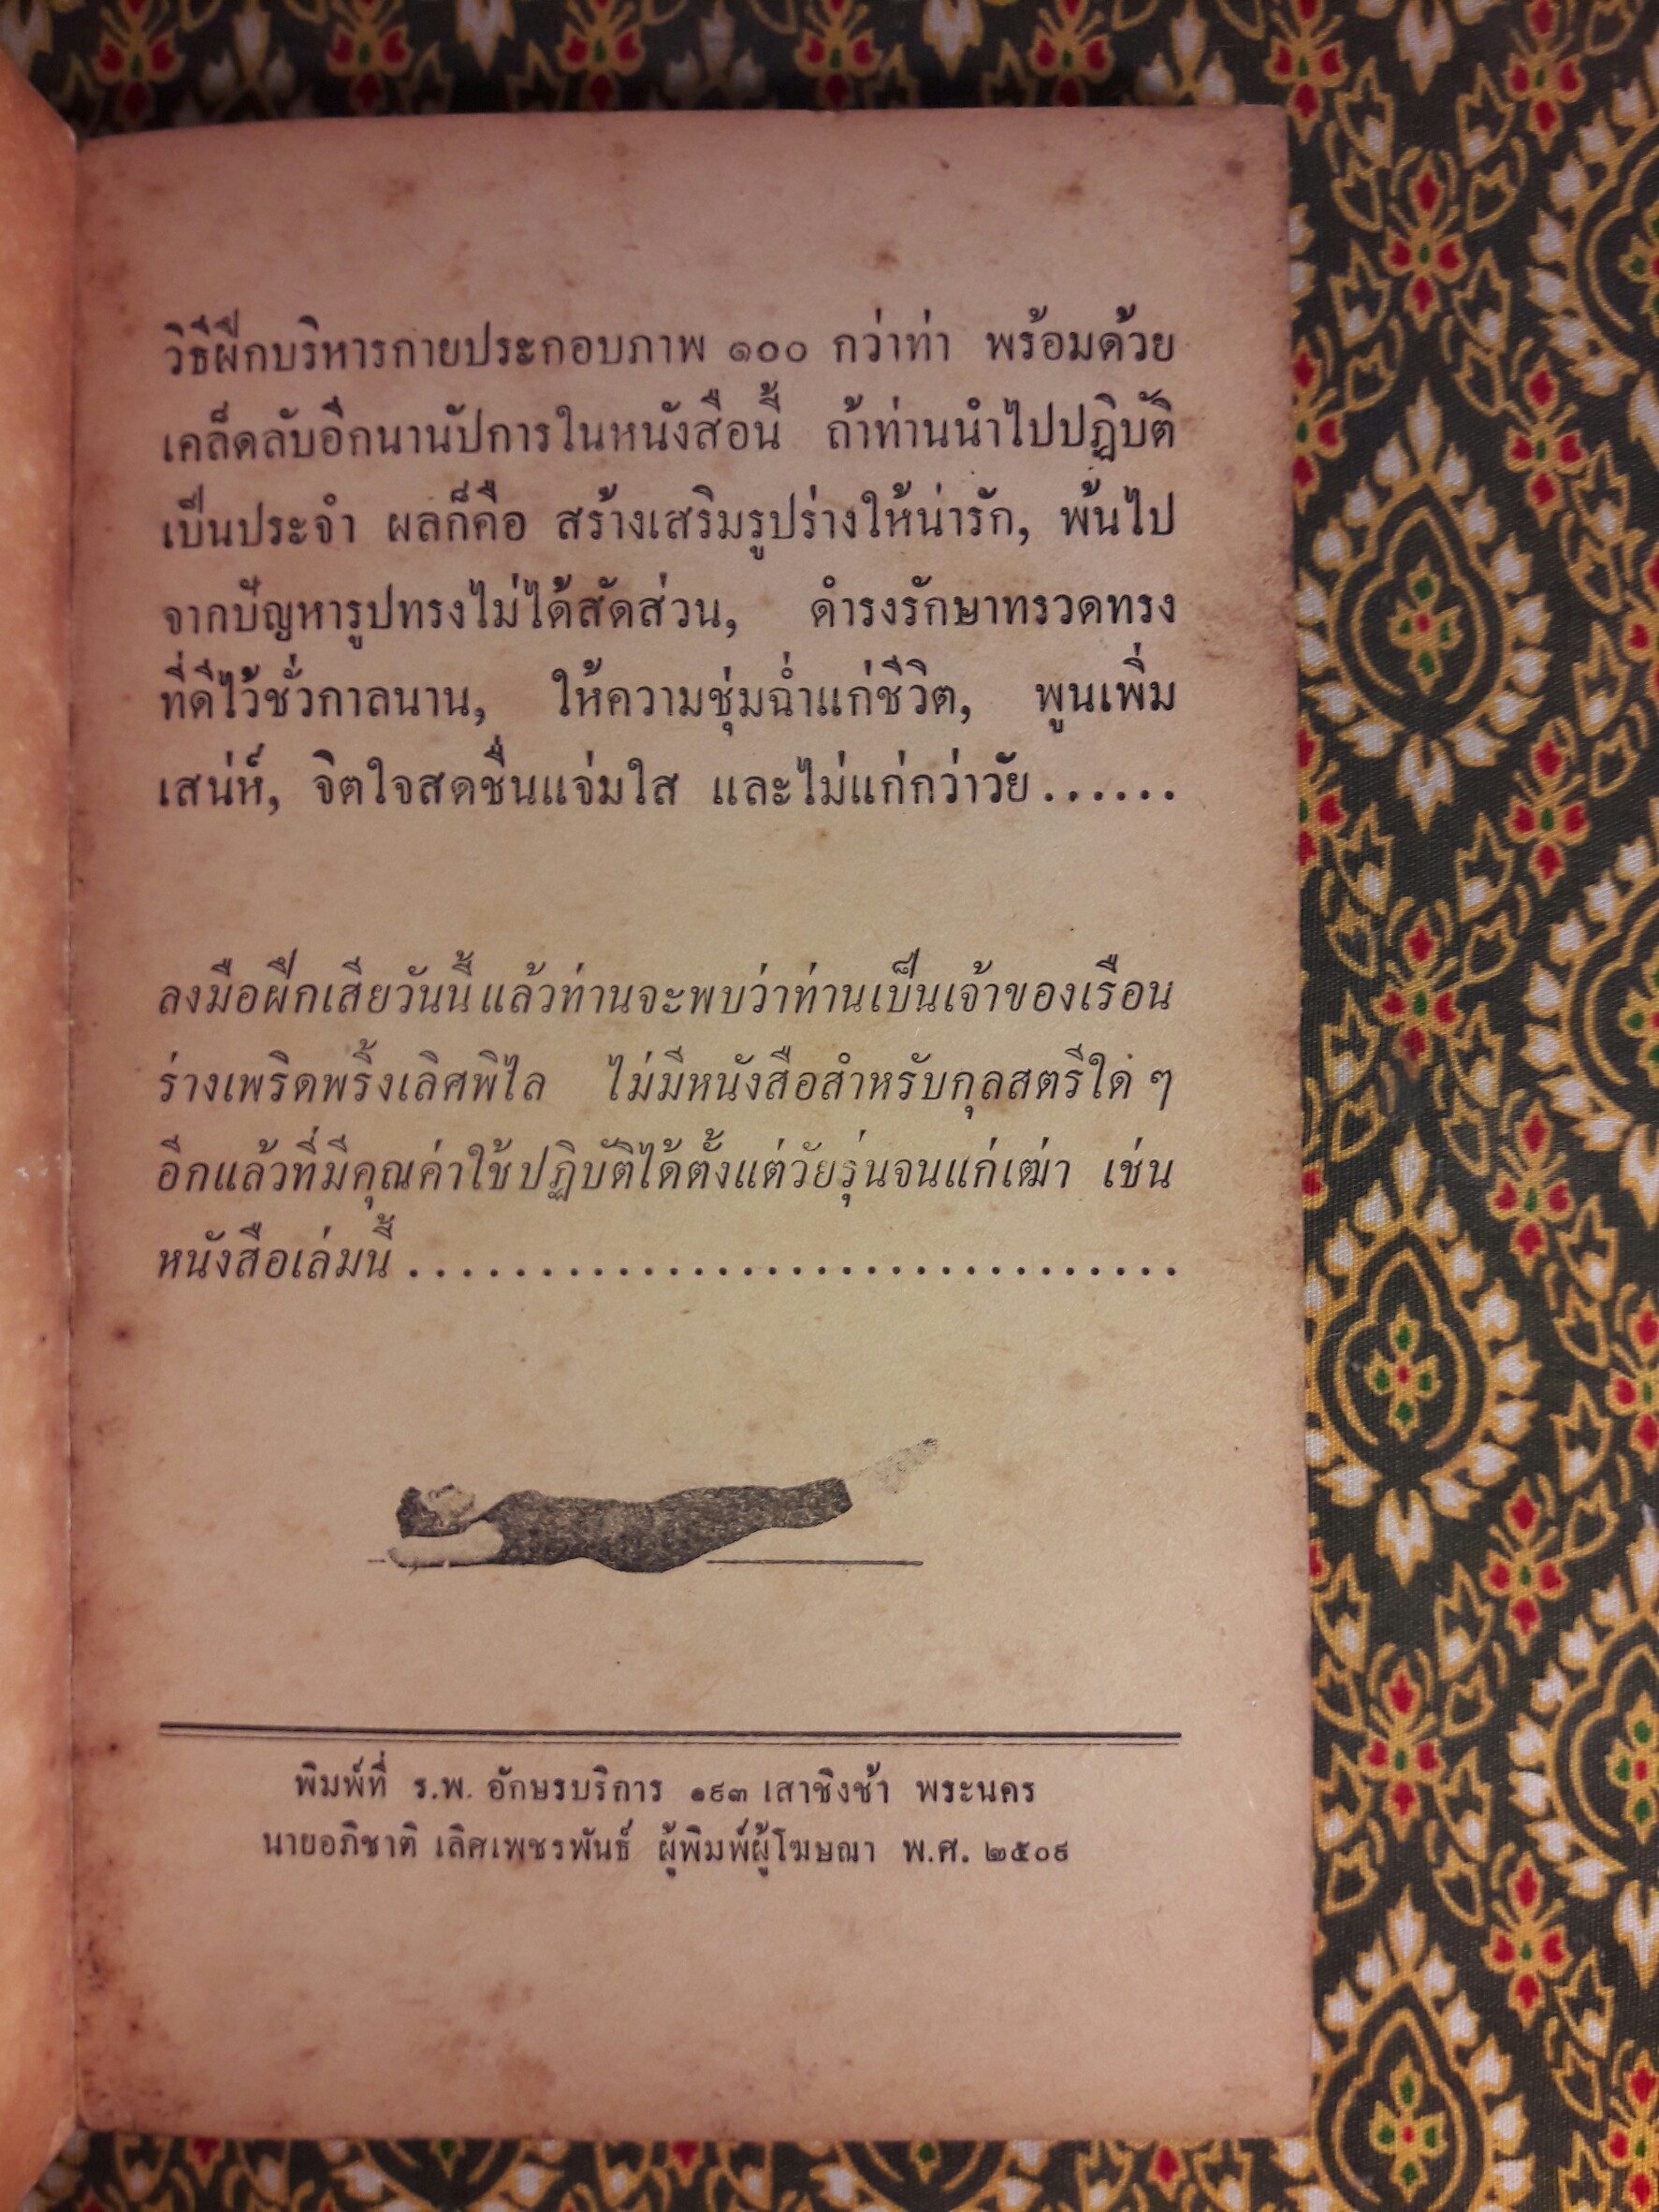 วิธีฝึกบริหารกายประกอบภาพ ๑๐๐ กว่าท่า พร้อมด้วย
เคล็ดลับอีกนานัปการในหนังสือนี้ ถ้าท่านนำไปปฏิบัติ
เป็นประจำ ผลก็คือ สร้างเสริมรูปร่างให้น่ารัก, พ้นไป
จากปัญหารูปทรงไม่ได้สัดส่วน, ดำรงรักษาทรวดทรง
ที่ดีไว้ชั่วกาลนาน, ให้ความชุ่มฉ่ำแก่ชีวิต, พูนเพิ่ม
เสน่ห์, จิตใจสดชื่นแจ่มใส และไม่แก่กว่าวัย......
ลงมือฝึกเสียวันนี้ แล้วท่านจะพบว่าท่านเป็นเจ้าของเรือน
ร่างเพริดพริ้งเลิศพิไล ไม่มีหนังสือสำหรับกุลสตรีใด ๆ
อีกแล้วที่มีคุณค่าใช้ปฏิบัติได้ตั้งแต่วัยรุ่นจนแก่เฒ่า เช่น
หนังสือเล่มนี้.............................
พิมพ์ที่ ร.พ. อักษรบริการ ๑๙๓ เสาชิงช้า พระนคร
นายอภิชาติ เลิศเพชรพันธ์ ผู้พิมพ์ผู้โฆษณา พ.ศ. ๒๕๐๙